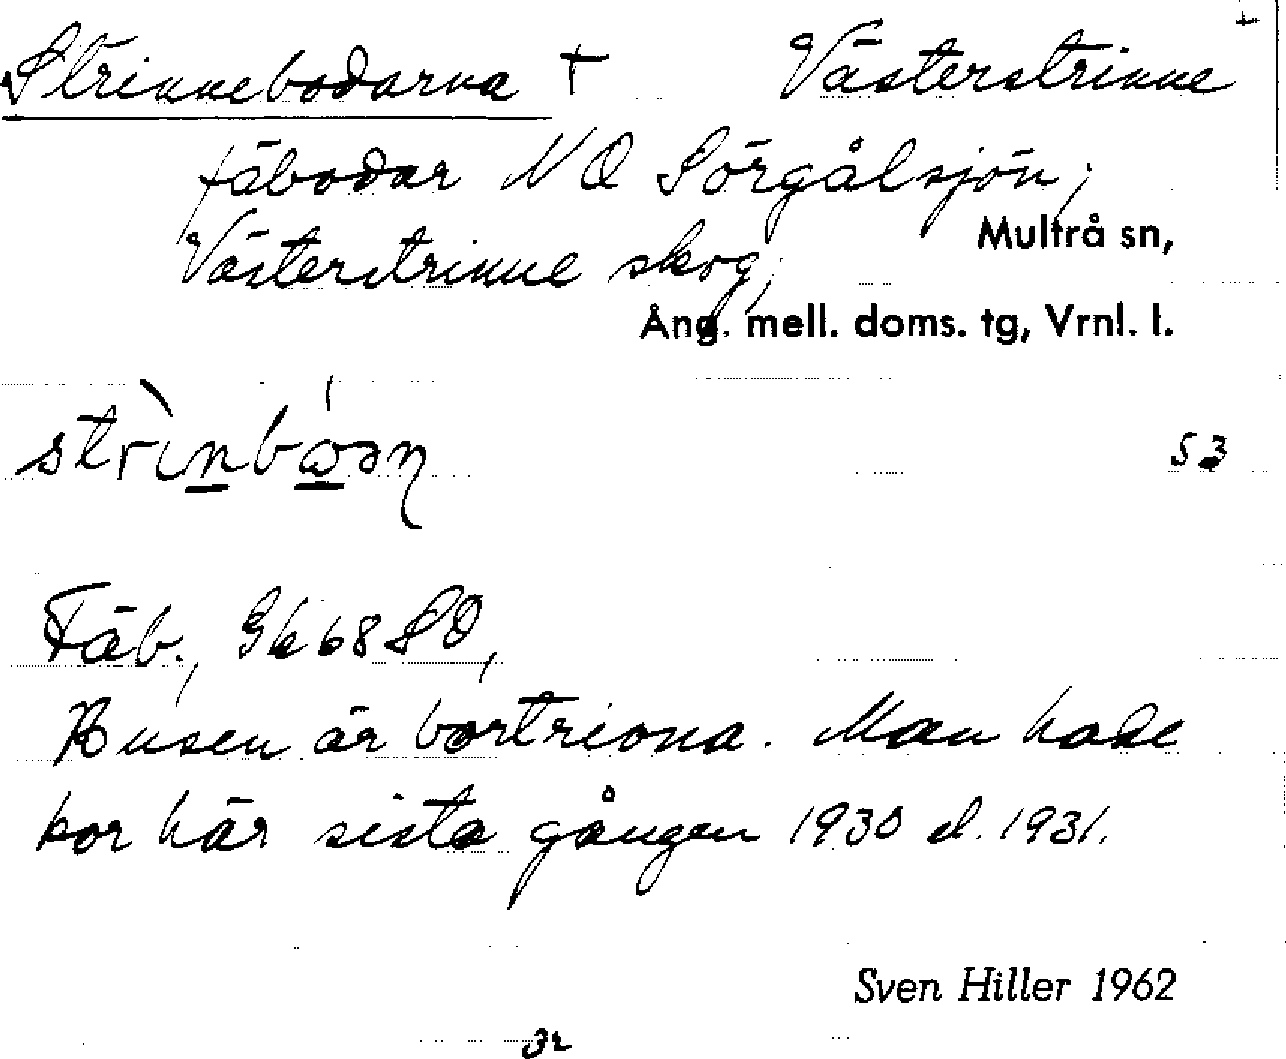 Strinnebodarna + Västerstrinne
fäbodar NO Sörgålsjön;
Multrå sn,
Västerstrinne skog;
Ång. mell. doms. tg, Vrnl. l.
53
Fäb., Gk 68 SO,
Husen är bortrivna. Man hade
kor här sista gången 1930 el. 1931.
Sven Hiller 1962